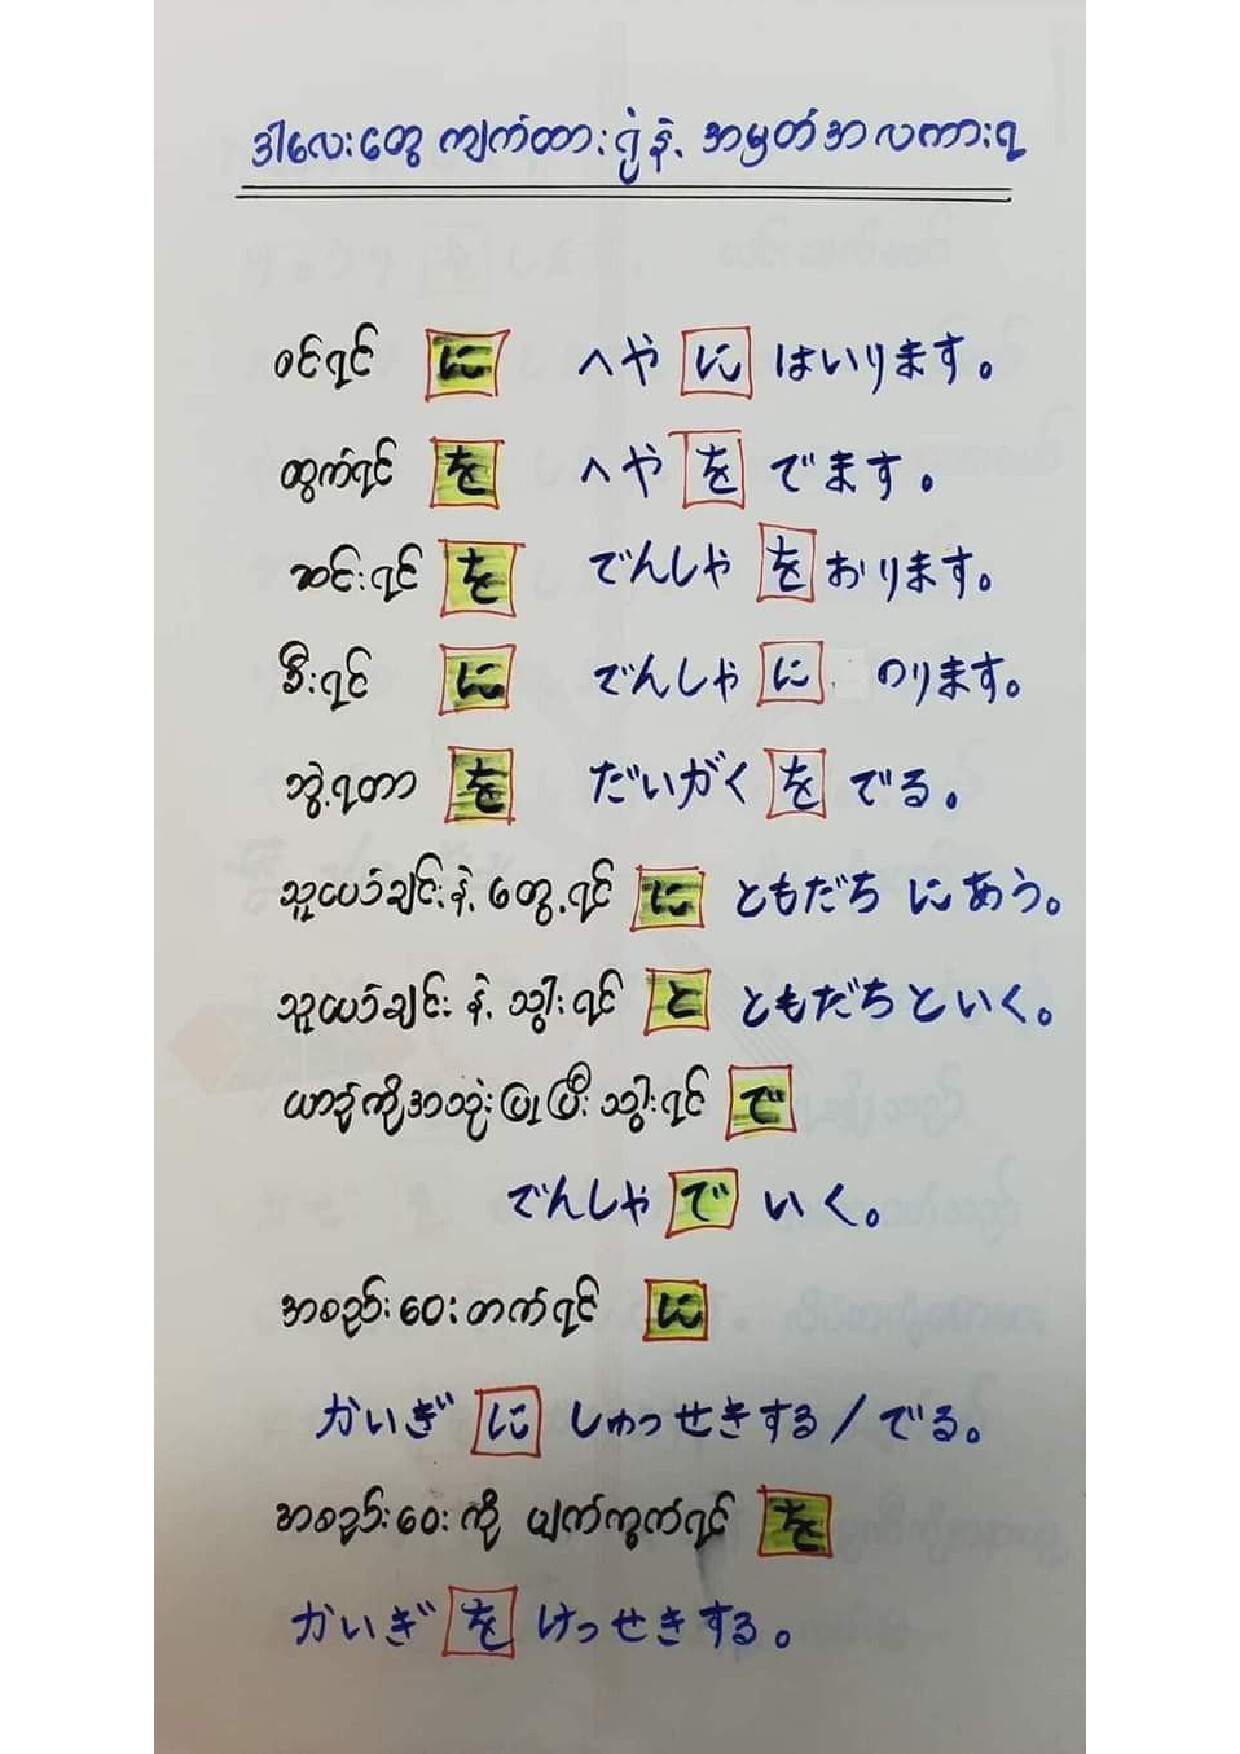 ဒါလေးတွေ ကျက်ထားရုံနဲ့ အမှတ်အလကားရ
ဝင်ရင် に へや に はいります。
ထွက်ရင် を へや を でます。
ဆင်းရင် を でんしゃ を おります。
စီးရင် に でんしゃ に のります。
ဘွဲ့ရတာ を だいがく を でる。
သူငယ်ချင်းနဲ့ တွေ့ရင် に ともだち に あう。
သူငယ်ချင်း နဲ့ သွားရင် と ともだち と いく。
ယာဉ်ကိုအသုံးပြုပြီးသွားရင် で
でんしゃ で いく。
အစည်းဝေးတက်ရင် に
かいぎ に しゅっせきする / でる。
အစည်းဝေးကို ပျက်ကွက်ရင် を
かいぎ を けっせきする。